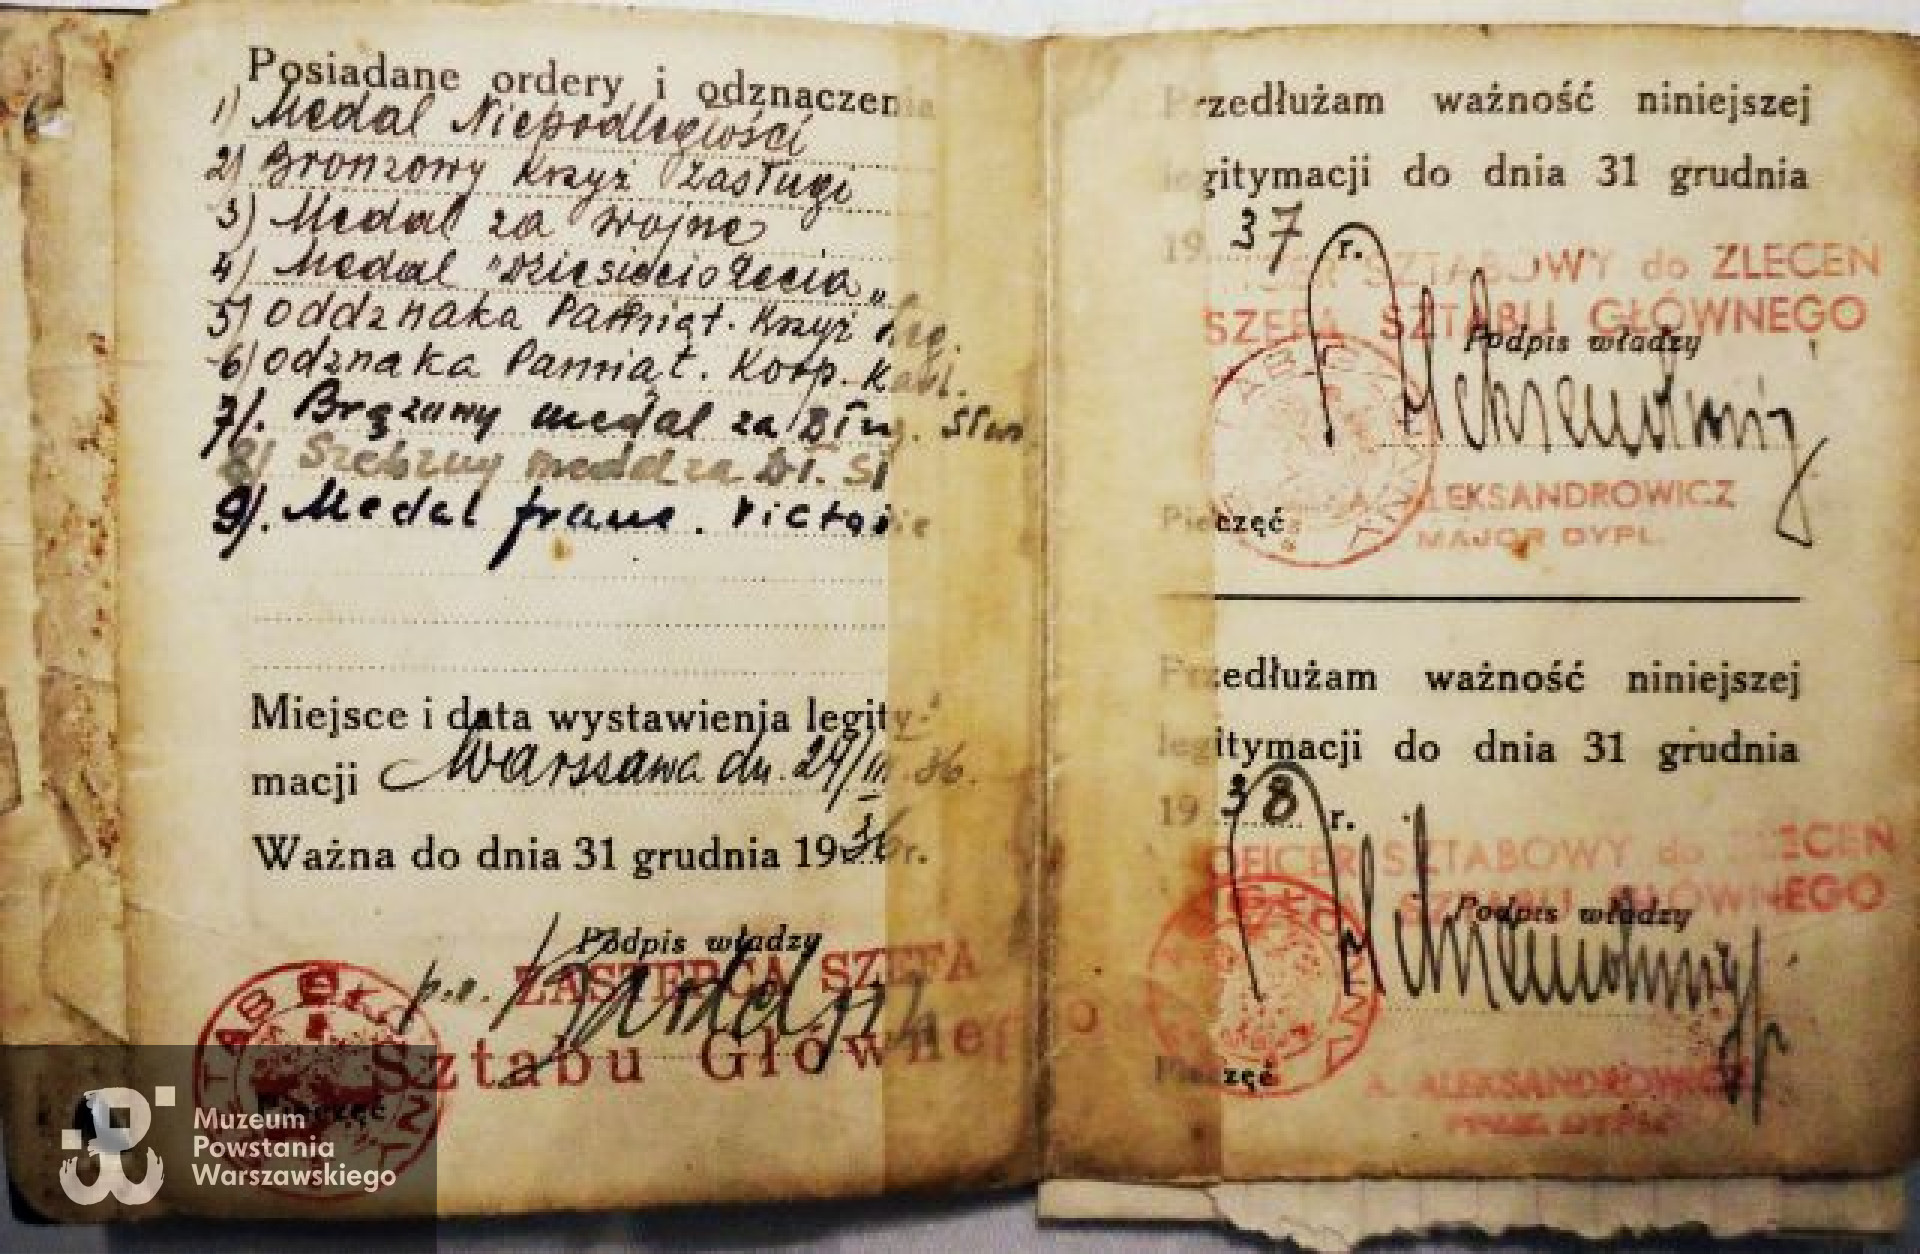 Posiadane ordery i odznaczenia
1) Medal Niepodległości
2) Bronzowy Krzyż Zasługi
3) Medal za wojnę
4) Medal "Dziesięciolecia"
5) oddznaka Pamiąt. Krzyż
6) odznaka Pamiąt. Korp. Kadl.
7). Brązowy medal za Dług. Służ.
8) Srebrny medal za Dł. Sł
9). Medal franc. Victoire
Miejsce i data wystawienia legity-
macji Warszawa dn. 24/III. 36.
Ważna do dnia 31 grudnia 1936 r.
Podpis władzy
p.o. ZASTĘPCA SZEFA
Sztabu Głównego
Pieczęć
Muzeum
Powstania
Warszawskiego
Przedłużam ważność niniejszej
legitymacji do dnia 31 grudnia
19 37 r.
OFICER SZTABOWY do ZLECEŃ
SZEFA SZTABU GŁÓWNEGO
Podpis władzy
Pieczęć
A. ALEKSANDROWICZ
MAJOR DYPL.
Przedłużam ważność niniejszej
legitymacji do dnia 31 grudnia
19 38 r.
OFICER SZTABOWY do ZLECEŃ
SZEFA SZTABU GŁÓWNEGO
Podpis władzy
Pieczęć
A. ALEKSANDROWICZ